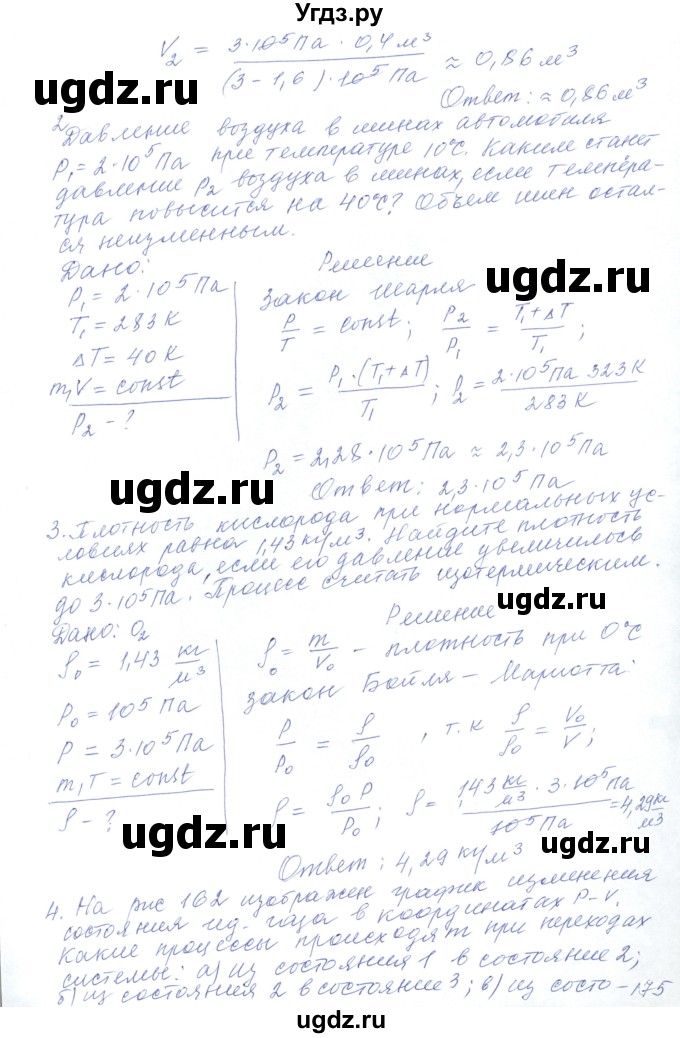 Угдз.ру
V₂ = 3·10⁵Па · 0,4м³ / (3-1,6)·10⁵Па ≈ 0,86м³
Ответ: ≈ 0,86м³
2 Давление воздуха в шинах автомобиля
P₁=2·10⁵Па при температуре 10°С. Каким станет
давление P₂ воздуха в шинах, если темпера-
тура повысится на 40°С? Объем шин остал-
ся неизменным.
Дано:
P₁=2·10⁵Па
T₁=283К
ΔT=40К
m,V=const
P₂-?
Решение
Закон Шарля
P/T = const; P₂/P₁ = T₁+ΔT/T₁;
P₂ = P₁·(T₁+ΔT)/T₁; P₂ = 2·10⁵Па 323К/283К
P₂=2,28·10⁵Па ≈ 2,3·10⁵Па
Ответ: 2,3·10⁵Па
3. Плотность кислорода при нормальных ус-
ловиях равна 1,43кг/м3. Найдите плотность
кислорода, если его давление увеличилось
до 3·10⁵Па. Процесс считать изотермическим.
Дано: O₂
ρ₀=1,43 кг/м³
P₀=10⁵Па
P=3·10⁵Па
m,T=const
ρ-?
Решение
ρ₀ = m/V₀ - плотность при 0°С
закон Бойля-Мариотта:
P/P₀ = ρ/ρ₀, т.к ρ/ρ₀ = V₀/V;
ρ = ρ₀P/P₀; ρ = 1,43 кг/м³ · 3·10⁵Па/10⁵Па = 4,29кг/м³
Ответ: 4,29 кг/м³
4. На рис 162 изображен график изменения
состояния ид. газа в координатах P-V.
Какие процессы происходят при переходах
системы: а) из состояния 1 в состояние 2;
б) из состояния 2 в состояние 3; в) из состо-175
ugdz.ru
ugdz.ru
ugdz.ru
ugdz.ru
ugdz.ru
ugdz.ru
ugdz.ru
ugdz.ru
ugdz.ru
ugdz.ru
ugdz.ru
ugdz.ru
ugdz.ru